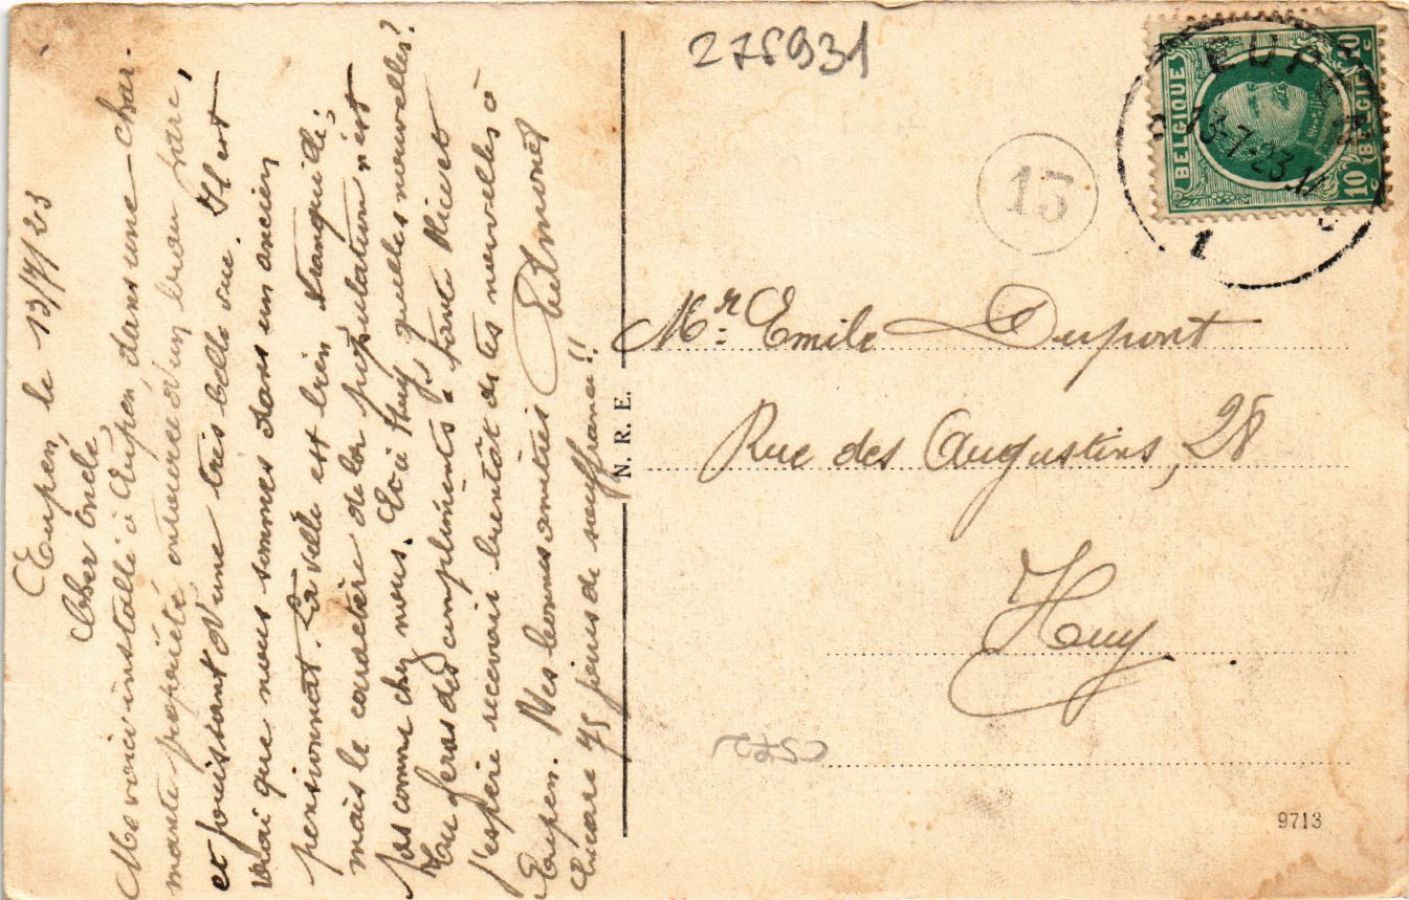 Eupen, le 13/7/23
Cher Oncle,
Me voici installé à Eupen, dans une char-
mante propriété entourée d'un beau parc,
et jouissant d'une très belle vue. Il est
vrai que nous sommes dans un ancien
pensionnat. La ville est bien tranquille;
mais le caractère de la population n'est
pas comme chez nous. Et à Huy, quelles nouvelles?
Tu feras des compliments à tante et
j'espère recevoir bientôt de tes nouvelles à
Eupen. Mes bonnes amitiés Edmond
Encore 75 jours de souffrance!!
278931
EUPEN
13-7-23
1
BELGIQUE
BELGIË
10 c
10
13
Mr. Emile Dupont
Rue des Augustins, 28
Huy
N. R. E.
9713